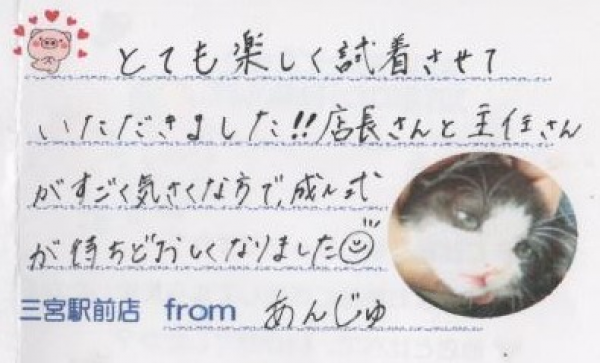 とても楽しく試着させて
いただきました!!店長さんと主任さん
がすごく気さくな方で、成人式
が待ちどおしくなりました
三宮駅前店 from あんじゅ